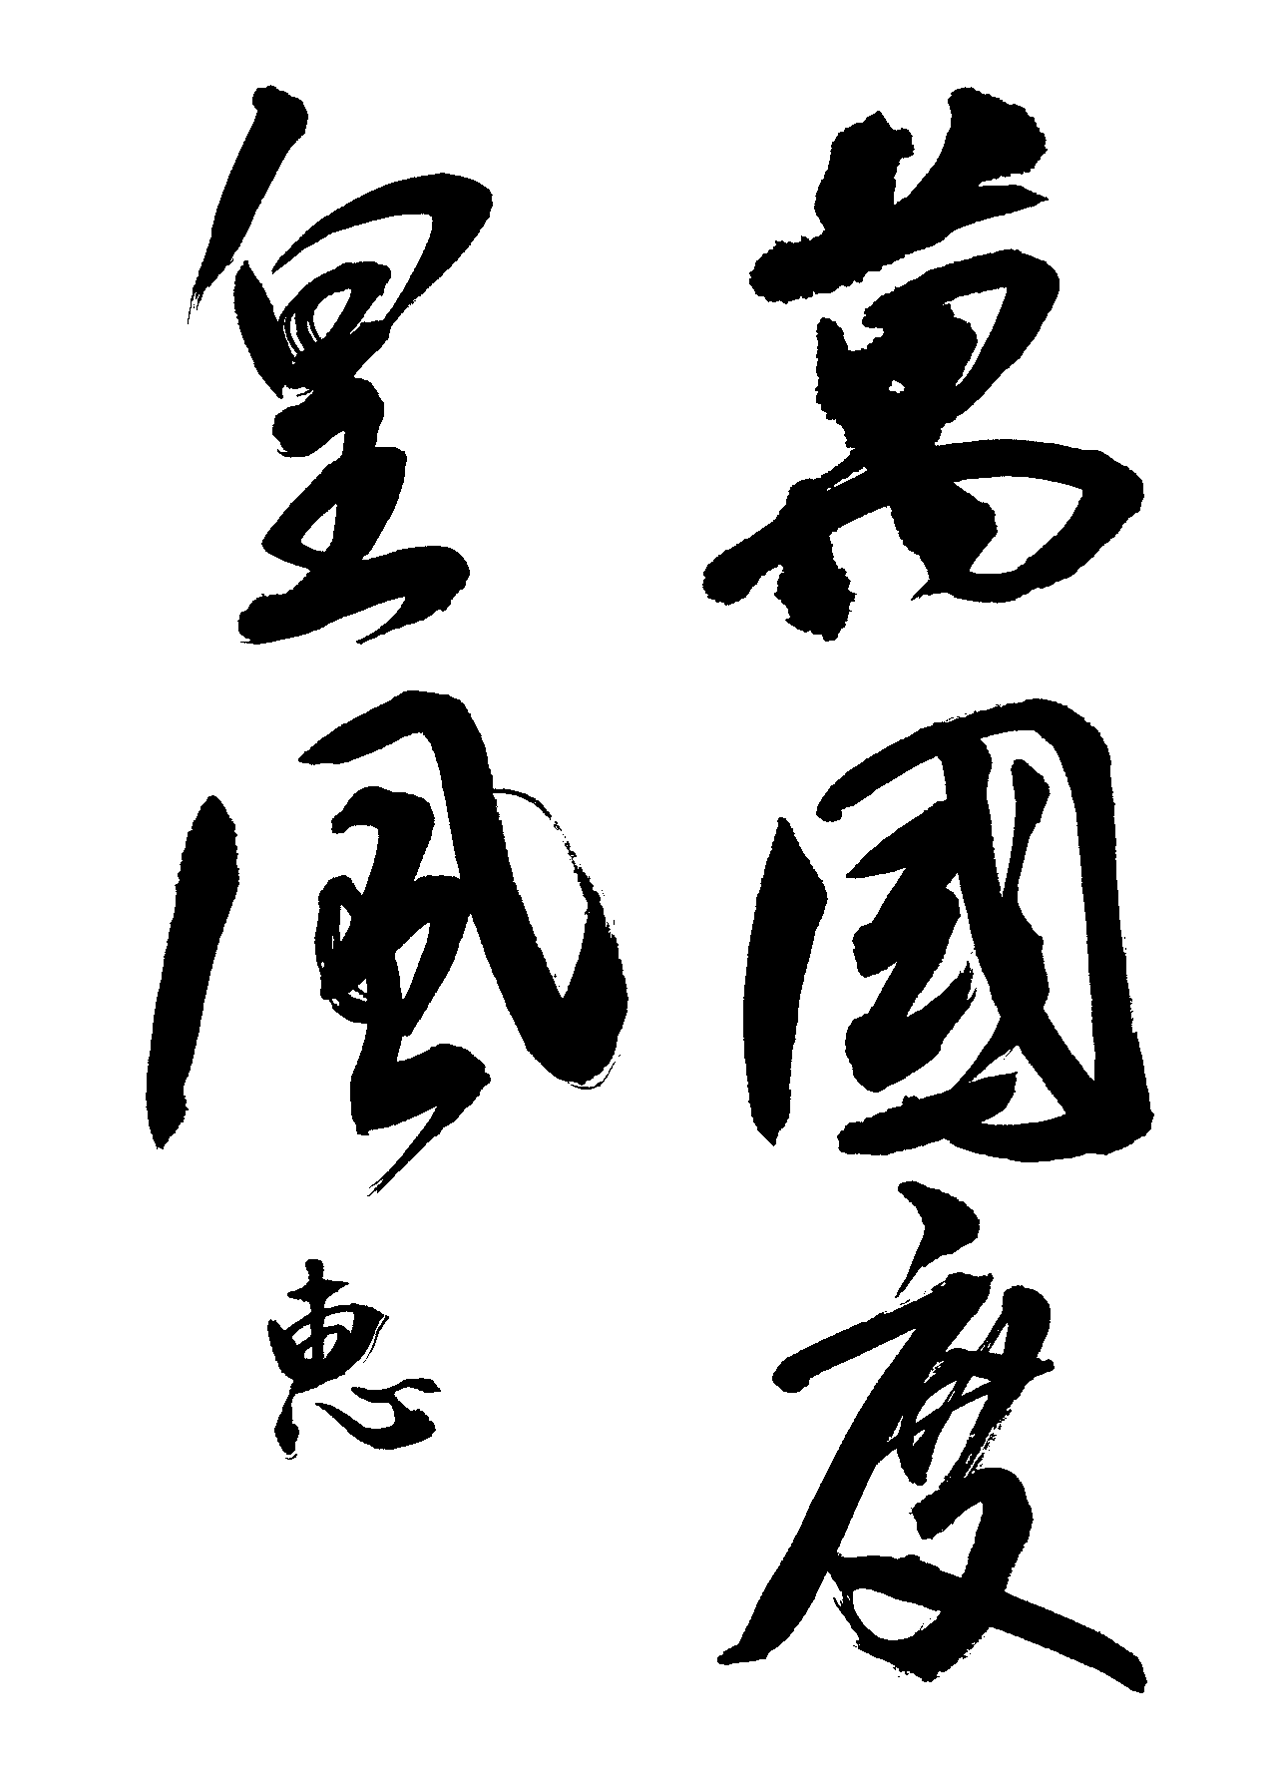 萬國度
皇風
恵